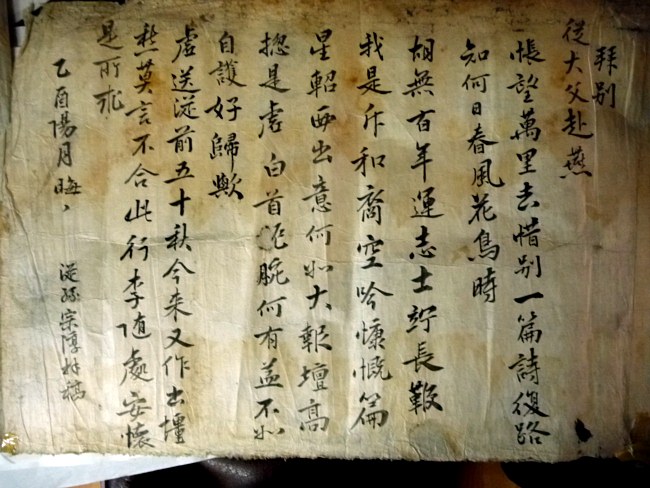 拜別
從大父赴燕
悵望萬里去惜別一篇詩復路
知何日春風花鳥時
胡無百年運志士竚長鞭
我是斥和裔空吟慷慨篇
星軺西出意何如大報壇高
摠是虛白首腕何有益不如
自護好歸歟
虛送從前五十秋今來又作出疆
愁莫言不合此行李隨處安懷
是所求
乙酉陽月晦
從孫宗淳拜稿